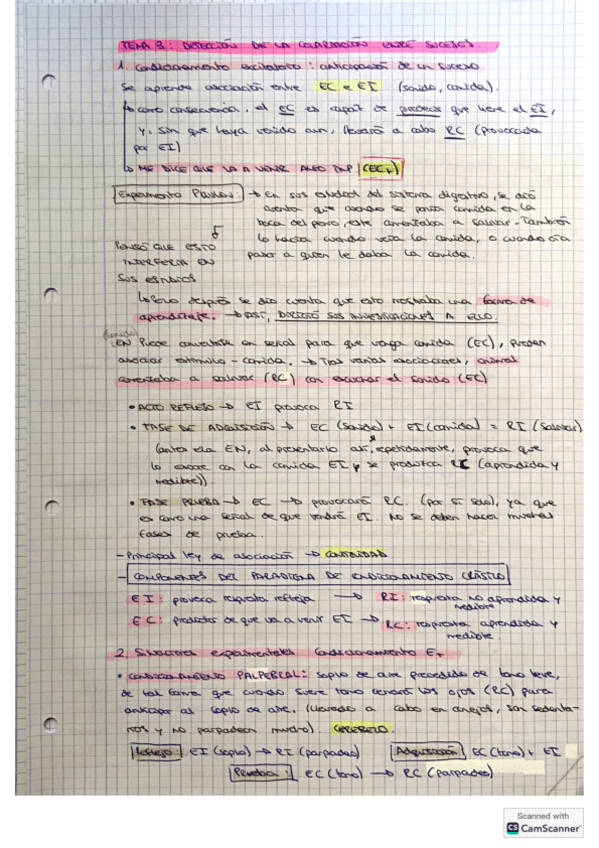 TEMA 3: DETECCIÓN DE LA COVARIACIÓN ENTRE SUCESOS
1. Condicionamiento excitatorio: anticipación de un suceso
Se aprende asociación entre EC e EI (sonido, comida).
↳ como consecuencia, el EC es capaz de predecir que viene el EI,
y, sin que haya venido aun, llevará a cabo RC (provocada
por EI)
↳ ME DICE QUE VA A VENIR ALGO IMP (EC+)
Experimento Pavlov → En sus estudios del sistema digestivo, se dió
cuenta que cuando se ponía comida en la
boca del perro, este comenzaba a salivar. También
lo hacía cuando veía la comida, o cuando oía
PENSÓ QUE ESTO
INTERFERÍA EN
SUS ESTUDIOS
pasar a quien le daba la comida.
↳ Pero después se dio cuenta que esto mostraba una forma de
aprendizaje. → ASÍ, DIRIGIÓ SUS INVESTIGACIONES A ELLO.
(sonido)
EN Puede convertirse en señal para que venga comida (EC), pueden
asociar estímulo - comida. → Tras varias asociaciones, animal
comenzaba a salivar (RC) con escuchar el sonido (EC)
• ACTO REFLEJO → EI provoca RI
• FASE DE ADQUISICIÓN → EC (sonido) + EI (comida) = RI (salivar)
(antes era EN, al presentarlo así, repetidamente, provoca que
lo asocie con la comida EI y se produzca RC (aprendida y
medible)).
• FASE PRUEBA → EC → provocará RC. (por sí solo), ya que
es como una señal de que vendrá EI. No se deben hacer muchas
fases de prueba.
- Principal ley de asociación → CONTIGÜIDAD
- COMPONENTES DEL PARADIGMA DE CONDICIONAMIENTO CLÁSICO
EI: provoca respuesta refleja → RI: respuesta no aprendida y
medible
EC: predictor de que va a venir EI → RC: respuesta aprendida y
medible.
2. Situaciones experimentales Condicionamiento E+
• CONDICIONAMIENTO PALPEBRAL: soplo de aire precedido de tono leve,
de tal forma que cuando suene tono cerrará los ojos (RC) para
anticipar al soplo de aire. (llevado a cabo en conejos, son sedenta-
rios y no parpadean mucho). CEREBELO.
Reflejo: EI (soplo) → RI (parpadeo) Adquisición: EC (tono) + EI
Prueba: EC (tono) → RC (parpadeo)
Scanned with
CS CamScanner